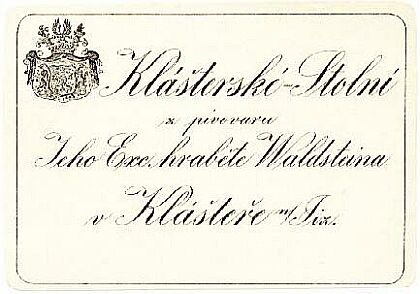 Klášterské-Stolní
z pivovaru
Jeho Exc. hraběte Waldsteina
v Klášteře n/Jiz.